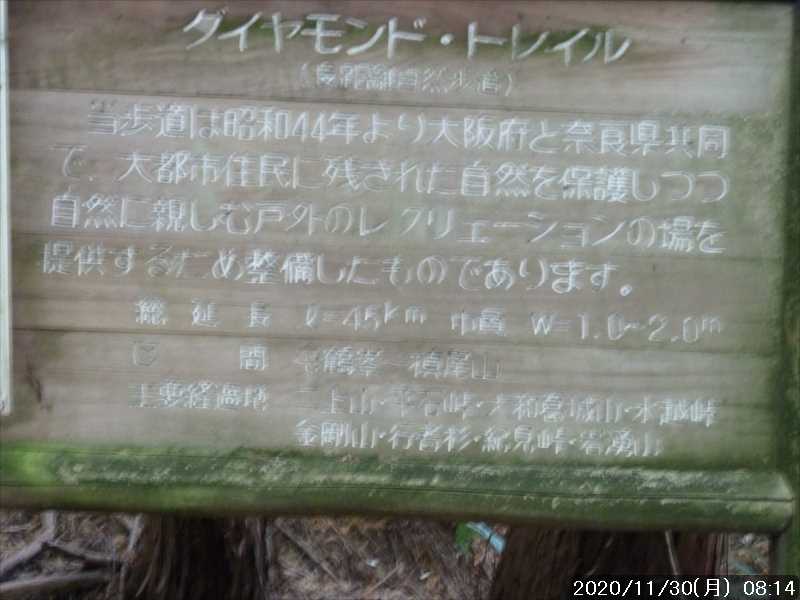 ダイヤモンド・トレイル
(長距離自然歩道)
当歩道は昭和44年より大阪府と奈良県共同
で、大都市住民に残された自然を保護しつつ
自然に親しむ戸外のレクリェーションの場を
提供するため整備したものであります。
総延長 ℓ=45km 巾員 W=1.0~2.0m
区間 屯鶴峯~槙尾山
主要経過地 二上山・平石峠・大和葛城山・水越峠
金剛山・行者杉・紀見峠・岩湧山
2020/11/30(月) 08:14